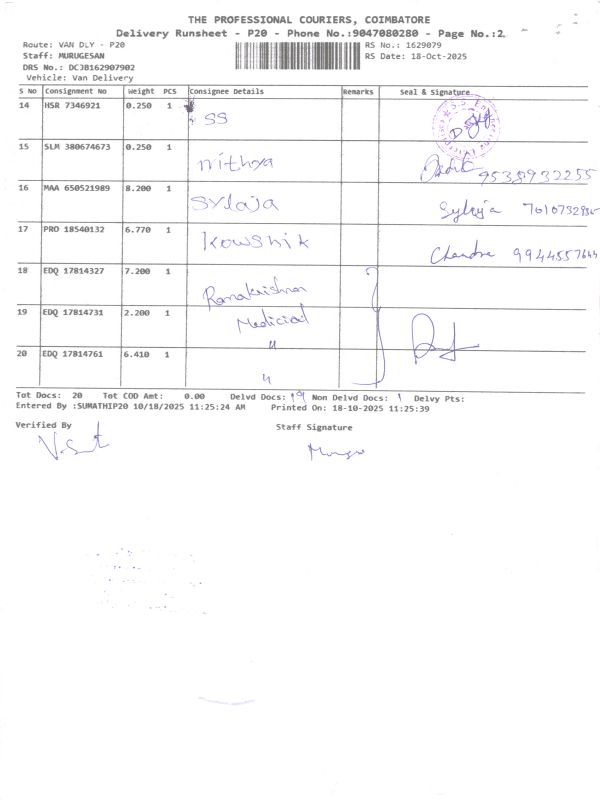 THE PROFESSIONAL COURIERS, COIMBATORE
Delivery Runsheet - P20 - Phone No.:9047080280 - Page No.:2
Route: VAN DLY - P20 RS No.: 1629079
Staff: MURUGESAN RS Date: 18-Oct-2025
DRS No.: DCJB162907902
Vehicle: Van Delivery
S No Consignment No Weight PCS Consignee Details Remarks Seal & Signature
14 HSR 7346921 0.250 1 SS
15 SLM 380674673 0.250 1 nithya 9538932255
16 MAA 650521989 8.200 1 Sylaja Sylaja 7010732936
17 PRO 18540132 6.770 1 Kowshik Chandra 9944557644
18 EDQ 17814327 7.200 1 Ramakrishnan
Medicial
19 EDQ 17814731 2.200 1 "
20 EDQ 17814761 6.410 1 "
Tot Docs: 20 Tot COD Amt: 0.00 Delvd Docs: 19 Non Delvd Docs: 1 Delvy Pts:
Entered By :SUMATHIP20 10/18/2025 11:25:24 AM Printed On: 18-10-2025 11:25:39
Verified By Staff Signature